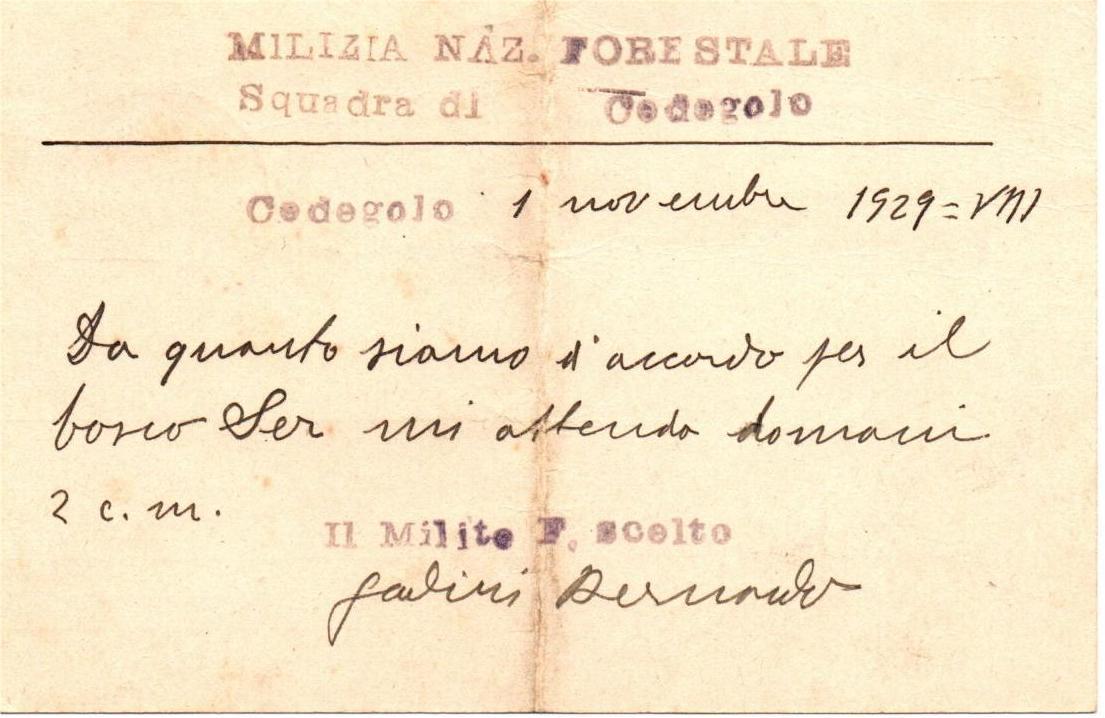 MILIZIA NAZ. FORESTALE
Squadra di Cedegolo
Cedegolo 1 novembre 1929=VIII
Da quanto siamo d'accordo per il
bosco Ser mi attenda domani
2 c. m.
Il Milite F. scelto
Bernardo